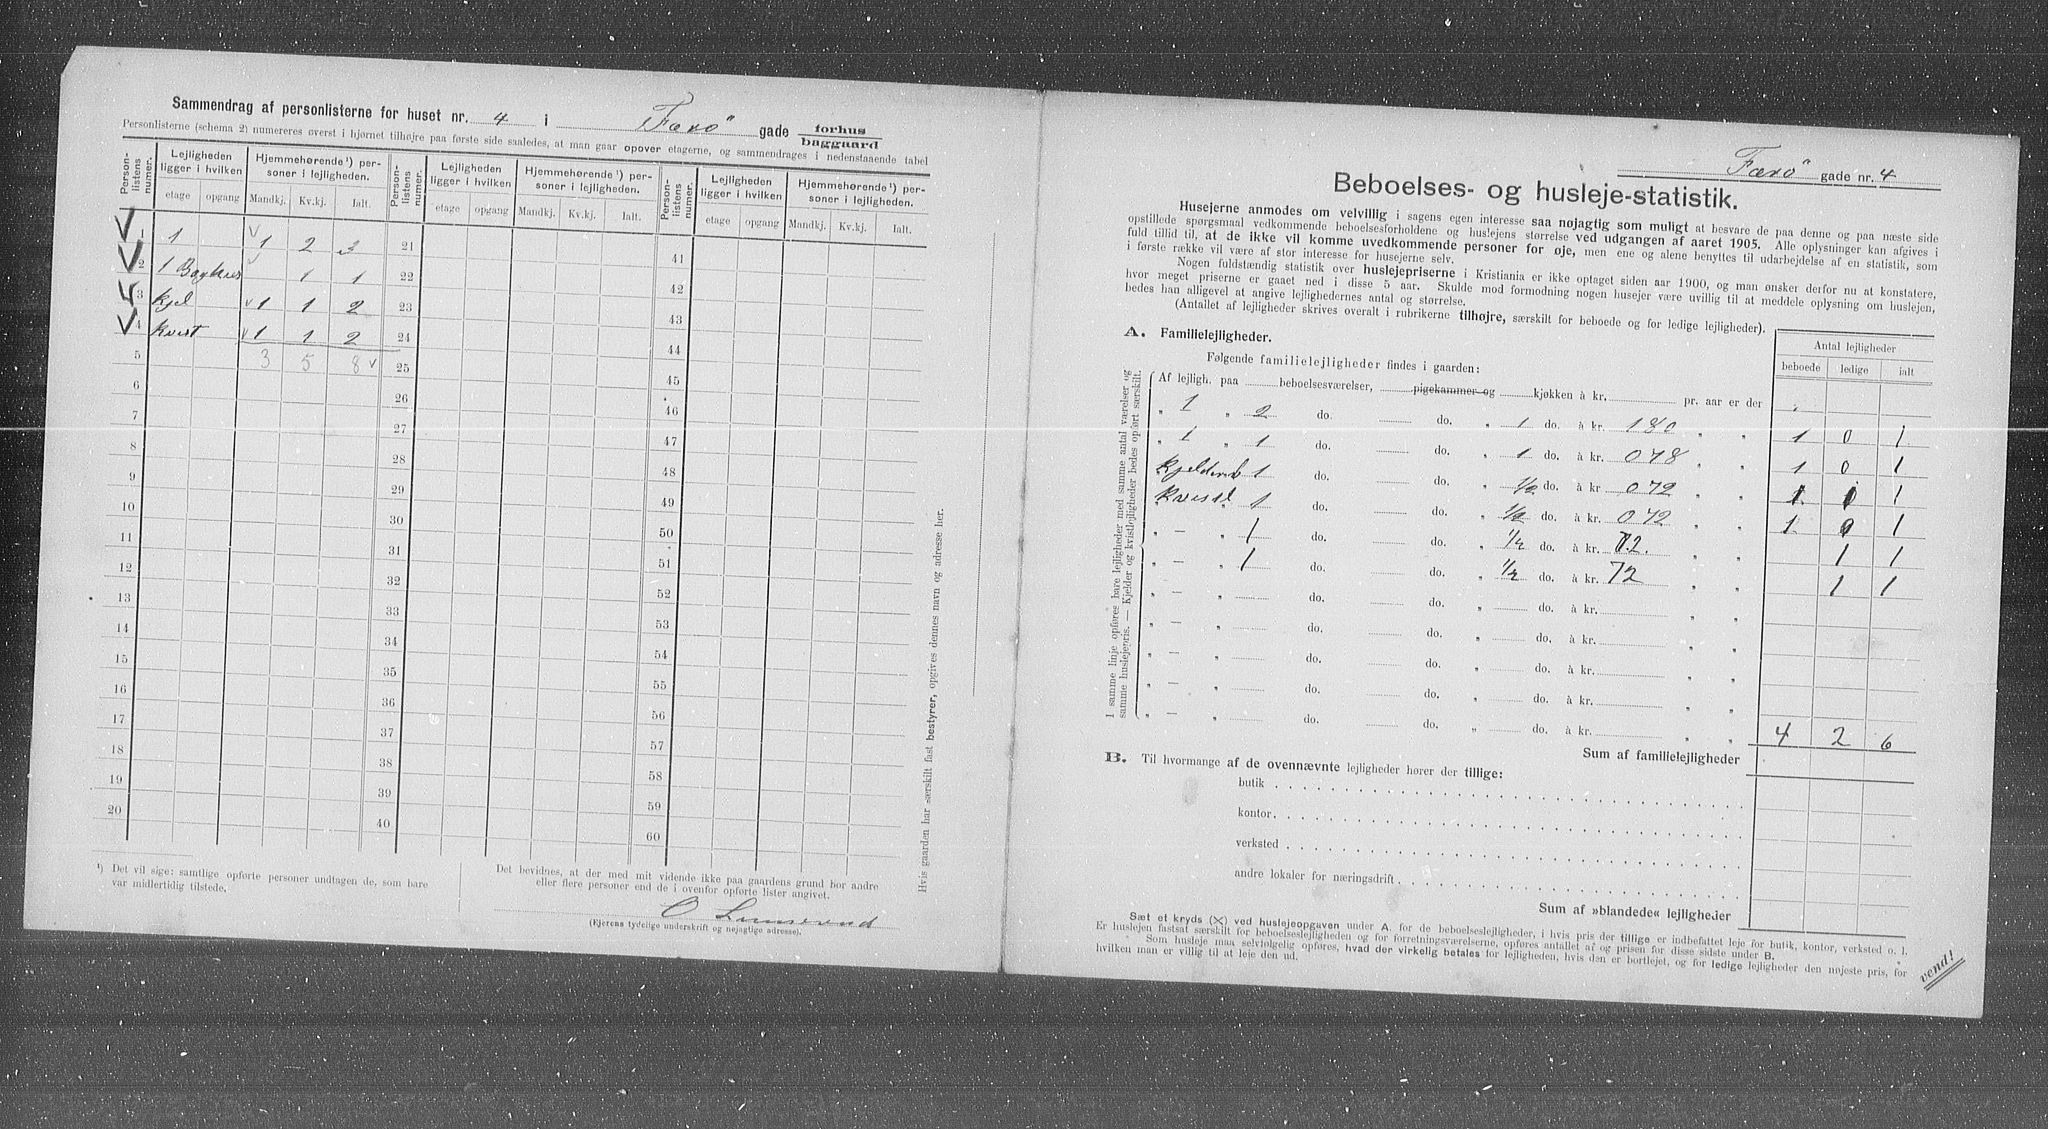 Sammendrag af personlisterne for huset nr. 4 i Færø gade forhus
baggaard
Personlisterne (schema 2) numereres øverst i hjørnet tilhøjre paa første side saaledes, at man gaar opover etagerne, og sammendrages i nedenstaaende tabel
Person-listens numer. Lejligheden ligger i hvilken Hjemmehørende¹) per-soner i lejligheden. Person-listens numer. Lejligheden ligger i hvilken Hjemmehørende¹) per-soner i lejligheden. Person-listens numer. Lejligheden ligger i hvilken Hjemmehørende¹) per-soner i lejligheden.
etage opgang Mandkj. Kv.kj. Ialt. etage opgang Mandkj. Kv.kj. Ialt. etage opgang Mandkj. Kv.kj. Ialt.
1 1 1 2 3 21 41
2 1 Baghus 1 1 22 42
3 Kjel 1 1 2 23 43
4 Kvist 1 1 2 24 44
5 3 5 8 25 45
6 26 46
7 27 47
8 28 48
9 29 49
10 30 50
11 31 51
12 32 52
13 33 53
14 34 54
15 35 55
16 36 56
17 37 57
18 38 58
19 39 59
20 40 60
¹) Det vil sige: samtlige opførte personer undtagen de, som bare
var midlertidig tilstede.
Det bevidnes, at der med mit vidende ikke paa gaardens grund bor andre
eller flere personer end de i ovenfor opførte lister angivet.
(Ejerens tydelige underskrift og nøjagtige adresse).
Hvis gaarden har særskilt fast bestyrer, opgives dennes navn og adresse her.
Færø gade nr. 4
Beboelses- og husleje-statistik.
Husejerne anmodes om velvillig i sagens egen interesse saa nøjagtig som muligt at besvare de paa denne og paa næste side
opstillede spørgsmaal vedkommende beboelsesforholdene og huslejens størrelse ved udgangen af aaret 1905. Alle oplysninger kan afgives i
fuld tillid til, at de ikke vil komme uvedkommende personer for øje, men ene og alene benyttes til udarbejdelse af en statistik, som
i første række vil være af stor interesse for husejerne selv.
Nogen fuldstændig statistik over huslejepriserne i Kristiania er ikke optaget siden aar 1900, og man ønsker derfor nu at konstatere,
hvor meget priserne er gaaet ned i disse 5 aar. Skulde mod formodning nogen husejer være uvillig til at meddele oplysning om huslejen,
bedes han alligevel at angive lejlighedernes antal og størrelse.
(Antallet af lejligheder skrives overalt i rubrikerne tilhøjre, særskilt for beboede og for ledige lejligheder).
A. Familielejligheder.
Antal lejligheder
Følgende familielejligheder findes i gaarden:
beboede ledige ialt
I samme linje opføres bare lejligheder med samme antal værelser og
samme huslejepris. — Kjelder og kvistlejligheder bedes opført særskilt.
Af lejligh. paa beboelsesværelser, pigekammer og kjøkken à kr. pr. aar er der
„ 1 „ 2 do. do. „ 1 do. à kr. 180 „ „ 1 0 1
„ 1 „ 1 do. do. „ 1 do. à kr. 078 „ „ 1 0 1
1 do. do. „ 1/2 do. à kr 072 „ „ 1 1
1 do. do. „ 1/2 do. à kr. 072 „ „ 1 0 1
„ — „ 1 do. do. „ 1/2 do. à kr. 72. „ „ 1 1
„ — „ 1 do. do. „ 1/2 do. à kr. 72 „ „ 1 1
„ — „ do. do. „ do. à kr. „ „
„ — „ do. do. „ do. à kr. „ „
„ — „ do. do. „ do. à kr. „ „
„ — „ do. do. „ do. à kr. „ „
„ — „ do. do. „ do. à kr. „ „
Sum af familielejligheder 4 2 6
B. Til hvormange af de ovennævnte lejligheder hører der tillige:
butik
kontor
verksted
andre lokaler for næringsdrift
Sum af »blandede« lejligheder
Sæt et kryds (X) ved huslejeopgaven under A. for de beboelseslejligheder, i hvis pris der tillige er indbefattet leje for butik, kontor, verksted o. l.
Er huslejen fastsat særskilt for beboelseslejligheden og for forretningsværelserne, opføres antallet af og prisen for disse sidste under B.
Som husleje maa selvfølgelig opføres, hvad der virkelig betales for lejligheden, hvis den er bortlejet, og for ledige lejligheder den nøjeste pris, for
hvilken man er villig til at leie den ud.
vend!